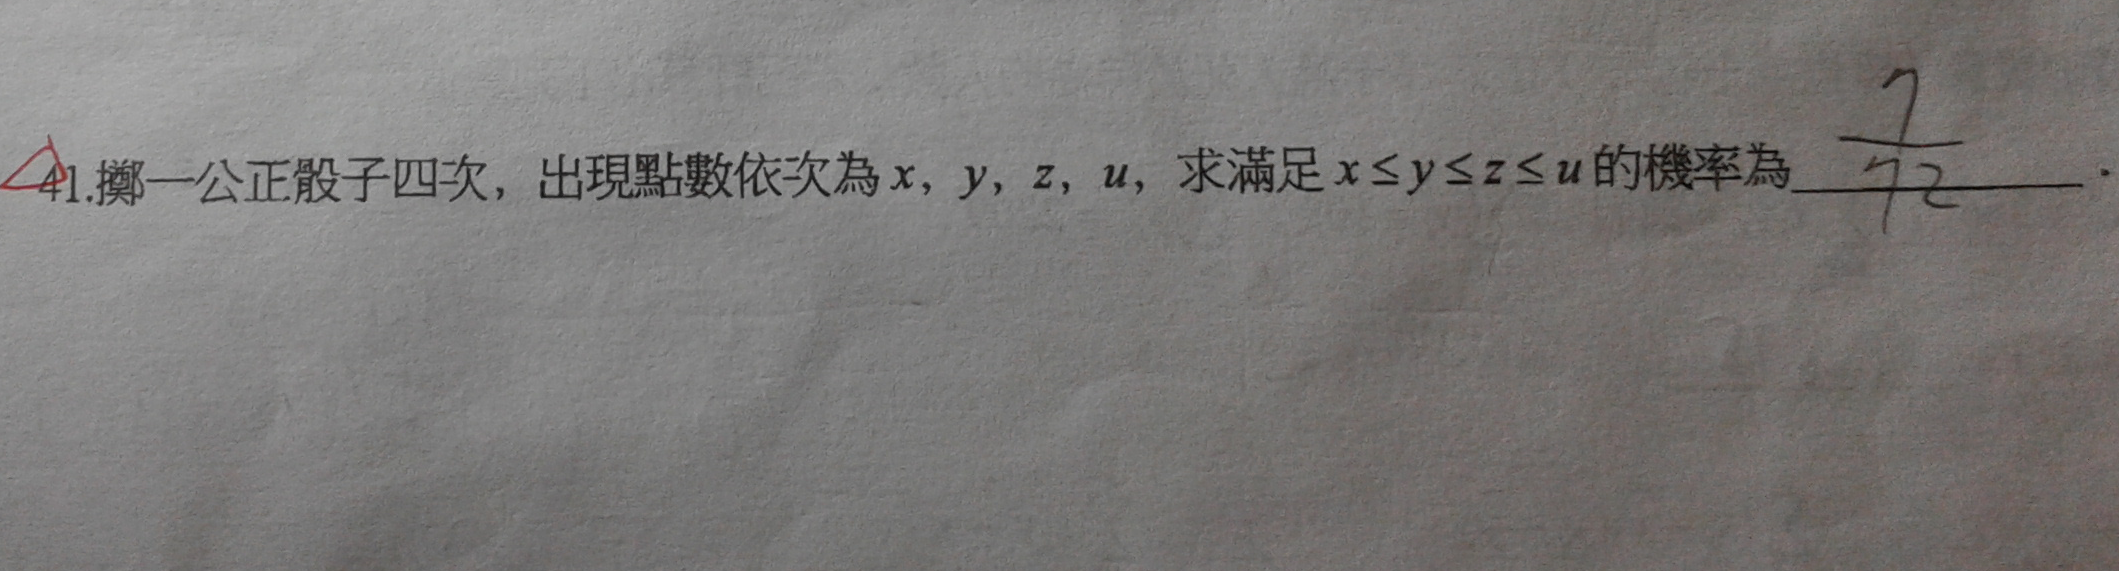 41.擲一公正骰子四次，出現點數依次為 x，y，z，u，求滿足 x≤y≤z≤u 的機率為 7/72 .